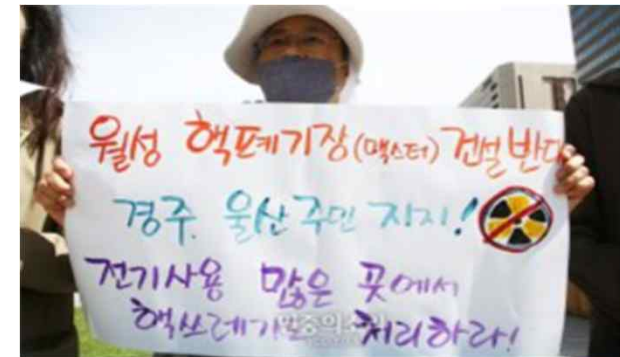 월성 핵폐기장(맥스터) 건설 반대
경주, 울산 주민 지지!
전기사용 많은 곳에서
핵쓰레기 처리하라!
민중의소리